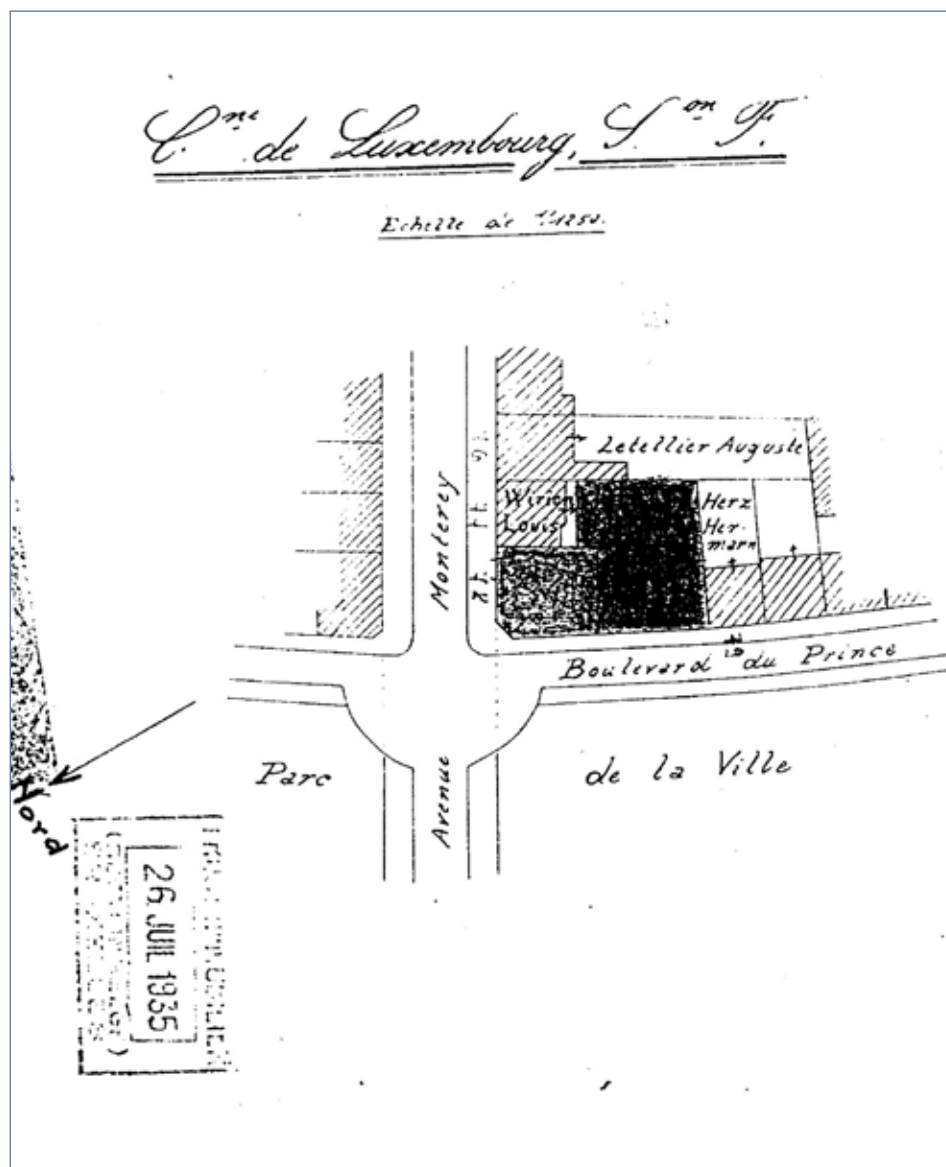 Cne de Luxembourg, Son F.
Echelle de 1:1250.
Letellier Auguste
Wirion
Louis
Herz
Her-
mann
Monterey
Boulevard du Prince
Parc
de la Ville
Avenue
Nord
26 JUIL 1935